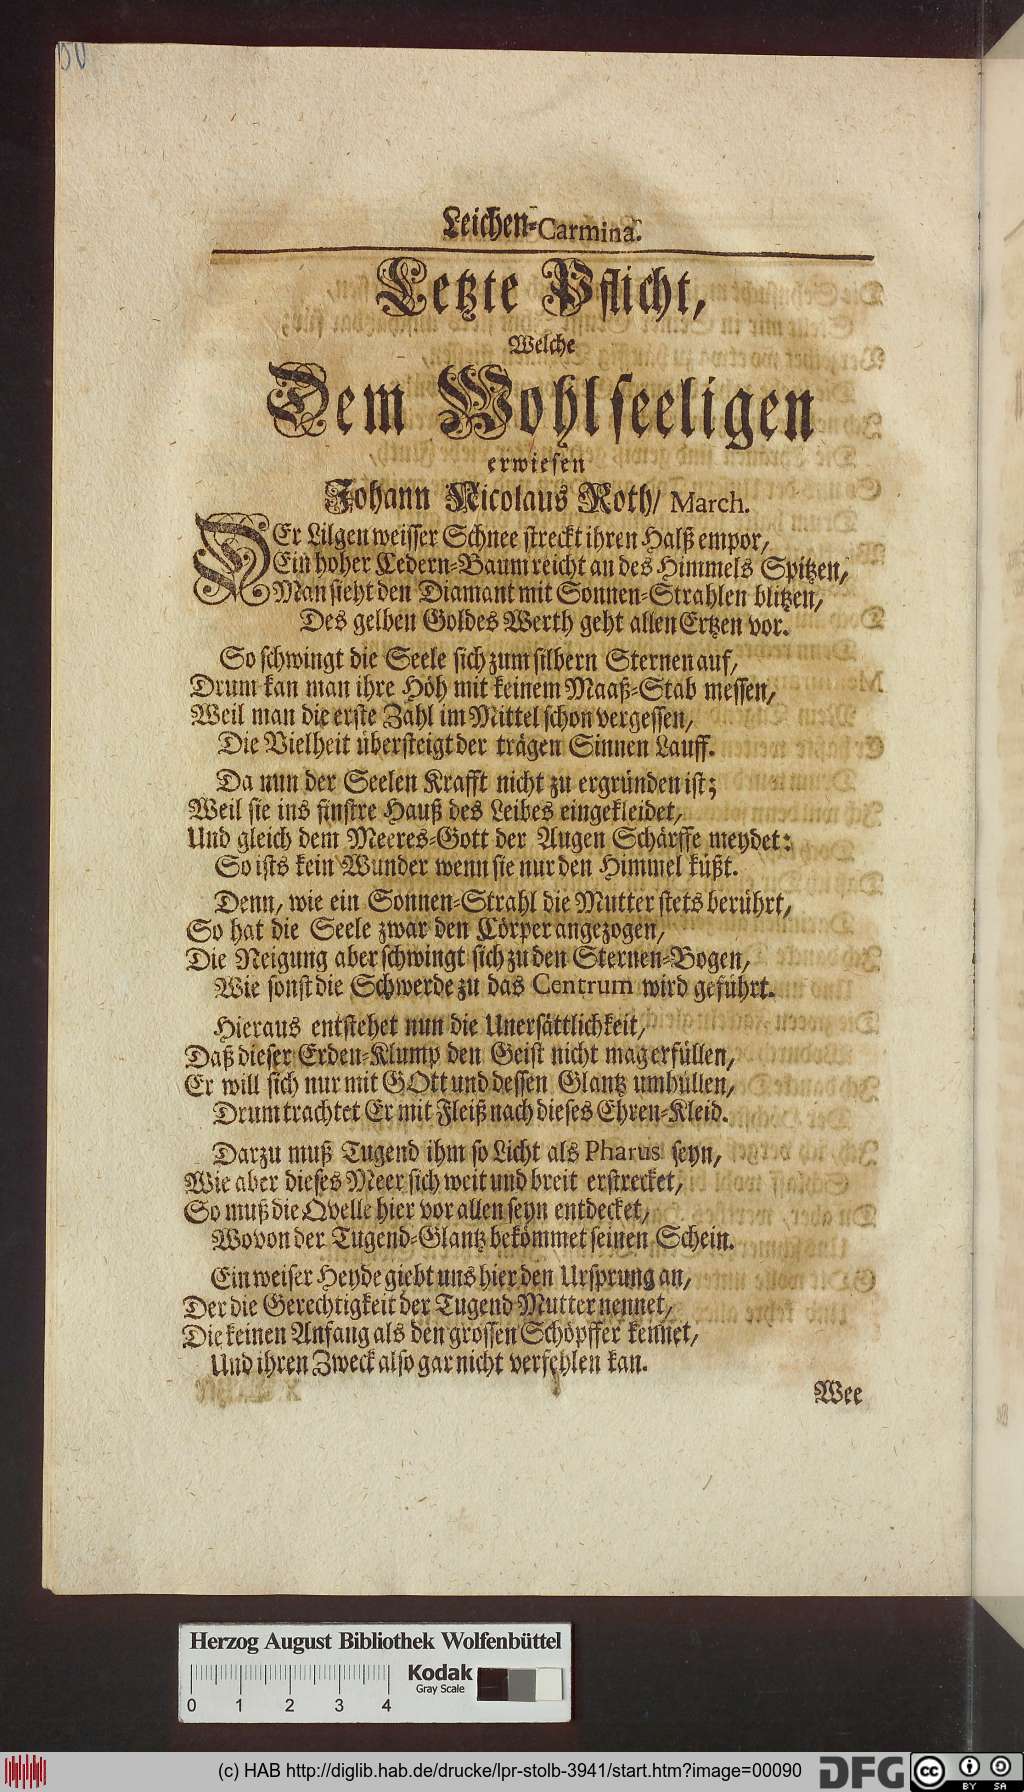 Leichen-Carmina.
Letzte Pflicht,
Welche
Dem Wohlseeligen
erwiesen
Johann Nicolaus Roth/ March.
DEr Lilgen weisser Schnee streckt ihren Halß empor,
Ein hoher Cedern-Baum reicht an des Himmels Spitzen,
Man sieht den Diamant mit Sonnen-Strahlen blitzen,
Des gelben Goldes Werth geht allen Ertzen vor.
So schwingt die Seele sich zum silbern Sternen auf,
Drum kan man ihre Höh mit keinem Maaß-Stab messen,
Weil man die erste Zahl im Mittel schon vergessen,
Die Vielheit übersteigt der trägen Sinnen Lauff.
Da nun der Seelen Krafft nicht zu ergründen ist;
Weil sie ins finstre Hauß des Leibes eingekleidet,
Und gleich dem Meeres-Gott der Augen Schärffe meydet:
So ists kein Wunder wenn sie nur den Himmel küßt.
Denn, wie ein Sonnen-Strahl die Mutter stets berührt,
So hat die Seele zwar den Cörper angezogen,
Die Neigung aber schwingt sich zu den Sternen-Bogen,
Wie sonst die Schwerde zu das Centrum wird geführt.
Hieraus entstehet nun die Unersättlichkeit,
Daß dieser Erden-Klump den Geist nicht mag erfüllen,
Er will sich nur mit GOtt und dessen Glantz umhüllen,
Drum trachtet Er mit Fleiß nach dieses Ehren-Kleid.
Darzu muß Tugend ihm so Licht als Pharus seyn,
Wie aber dieses Meer sich weit und breit erstrecket,
So muß die Qvelle hier vor allen seyn entdecket,
Wovon der Tugend-Glantz bekömmet seinen Schein.
Ein weiser Heyde giebt uns hier den Ursprung an,
Der die Gerechtigkeit der Tugend Mutter nennet,
Die keinen Anfang als den grossen Schöpffer kennet,
Und ihren Zweck also gar nicht verfehlen kan.
Wee
Herzog August Bibliothek Wolfenbüttel
Kodak
Gray Scale
0 1 2 3 4
(c) HAB http://diglib.hab.de/drucke/lpr-stolb-3941/start.htm?image=00090
DFG
cc
BY SA